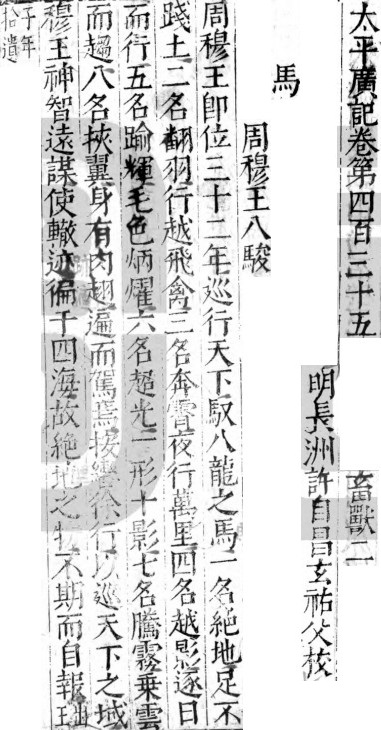 太平廣記卷第四百三十五
畜獸二
明長洲許自昌玄祐父校
馬
周穆王八駿
周穆王即位三十二年巡行天下馭八龍之馬一名絶地足不
踐土二名翻羽行越飛禽三名奔霄夜行萬里四名越影逐日
而行五名踰輝毛色炳燿六名超光一形十影七名騰霧乗雲
而趨八名挾翼身有肉翅遍而駕焉按轡徐行以巡天下之域
穆王神智遠謀使轍迹徧于四海故絶地之物不期而自報
子年
拾遺